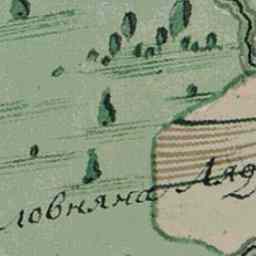 ловняна Ляд